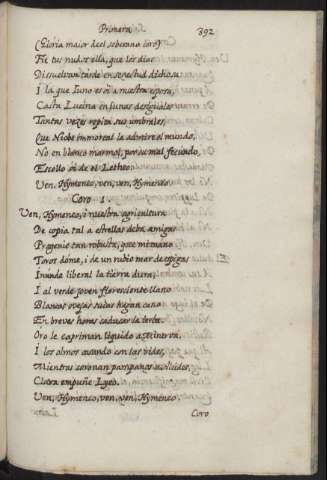 Primera
392
(Gloria maior de el soberano coro)
Fie tus nudos ella, que los dias
Dissuelvan tarde en senectud dichosa
I la que Iuno es oi a nuestra esposa,
Casta Lucina en lunas desiguales
Tantas vezes repita sus umbrales,
Que Niobe immortal la admire el mundo,
No en blanco marmol, por su mal fecundo,
Escollo oi de el Letheo
Ven, Hymeneo, ven, ven, Hymeneo.
Coro 1.
Ven, Hymeneo, i nuestra agricultura
De copia tal a estrellas deba amigas
Progenie tan robusta, que su mano
Toros dome, i de un rubio mar de espigas
Inunde liberal la tierra dura;
I al verde joven floreciente llano
Blancas ovejas suias hagan cano
En breves horas caducar la ierba.
Oro le expriman liquido a Minerva,
I los olmos casando con las vides,
Mientras coronan pampanos a Alcides,
Clava empuñe Lyeo.
Ven, Hymeneo, ven, ven, Hymeneo.
Coro